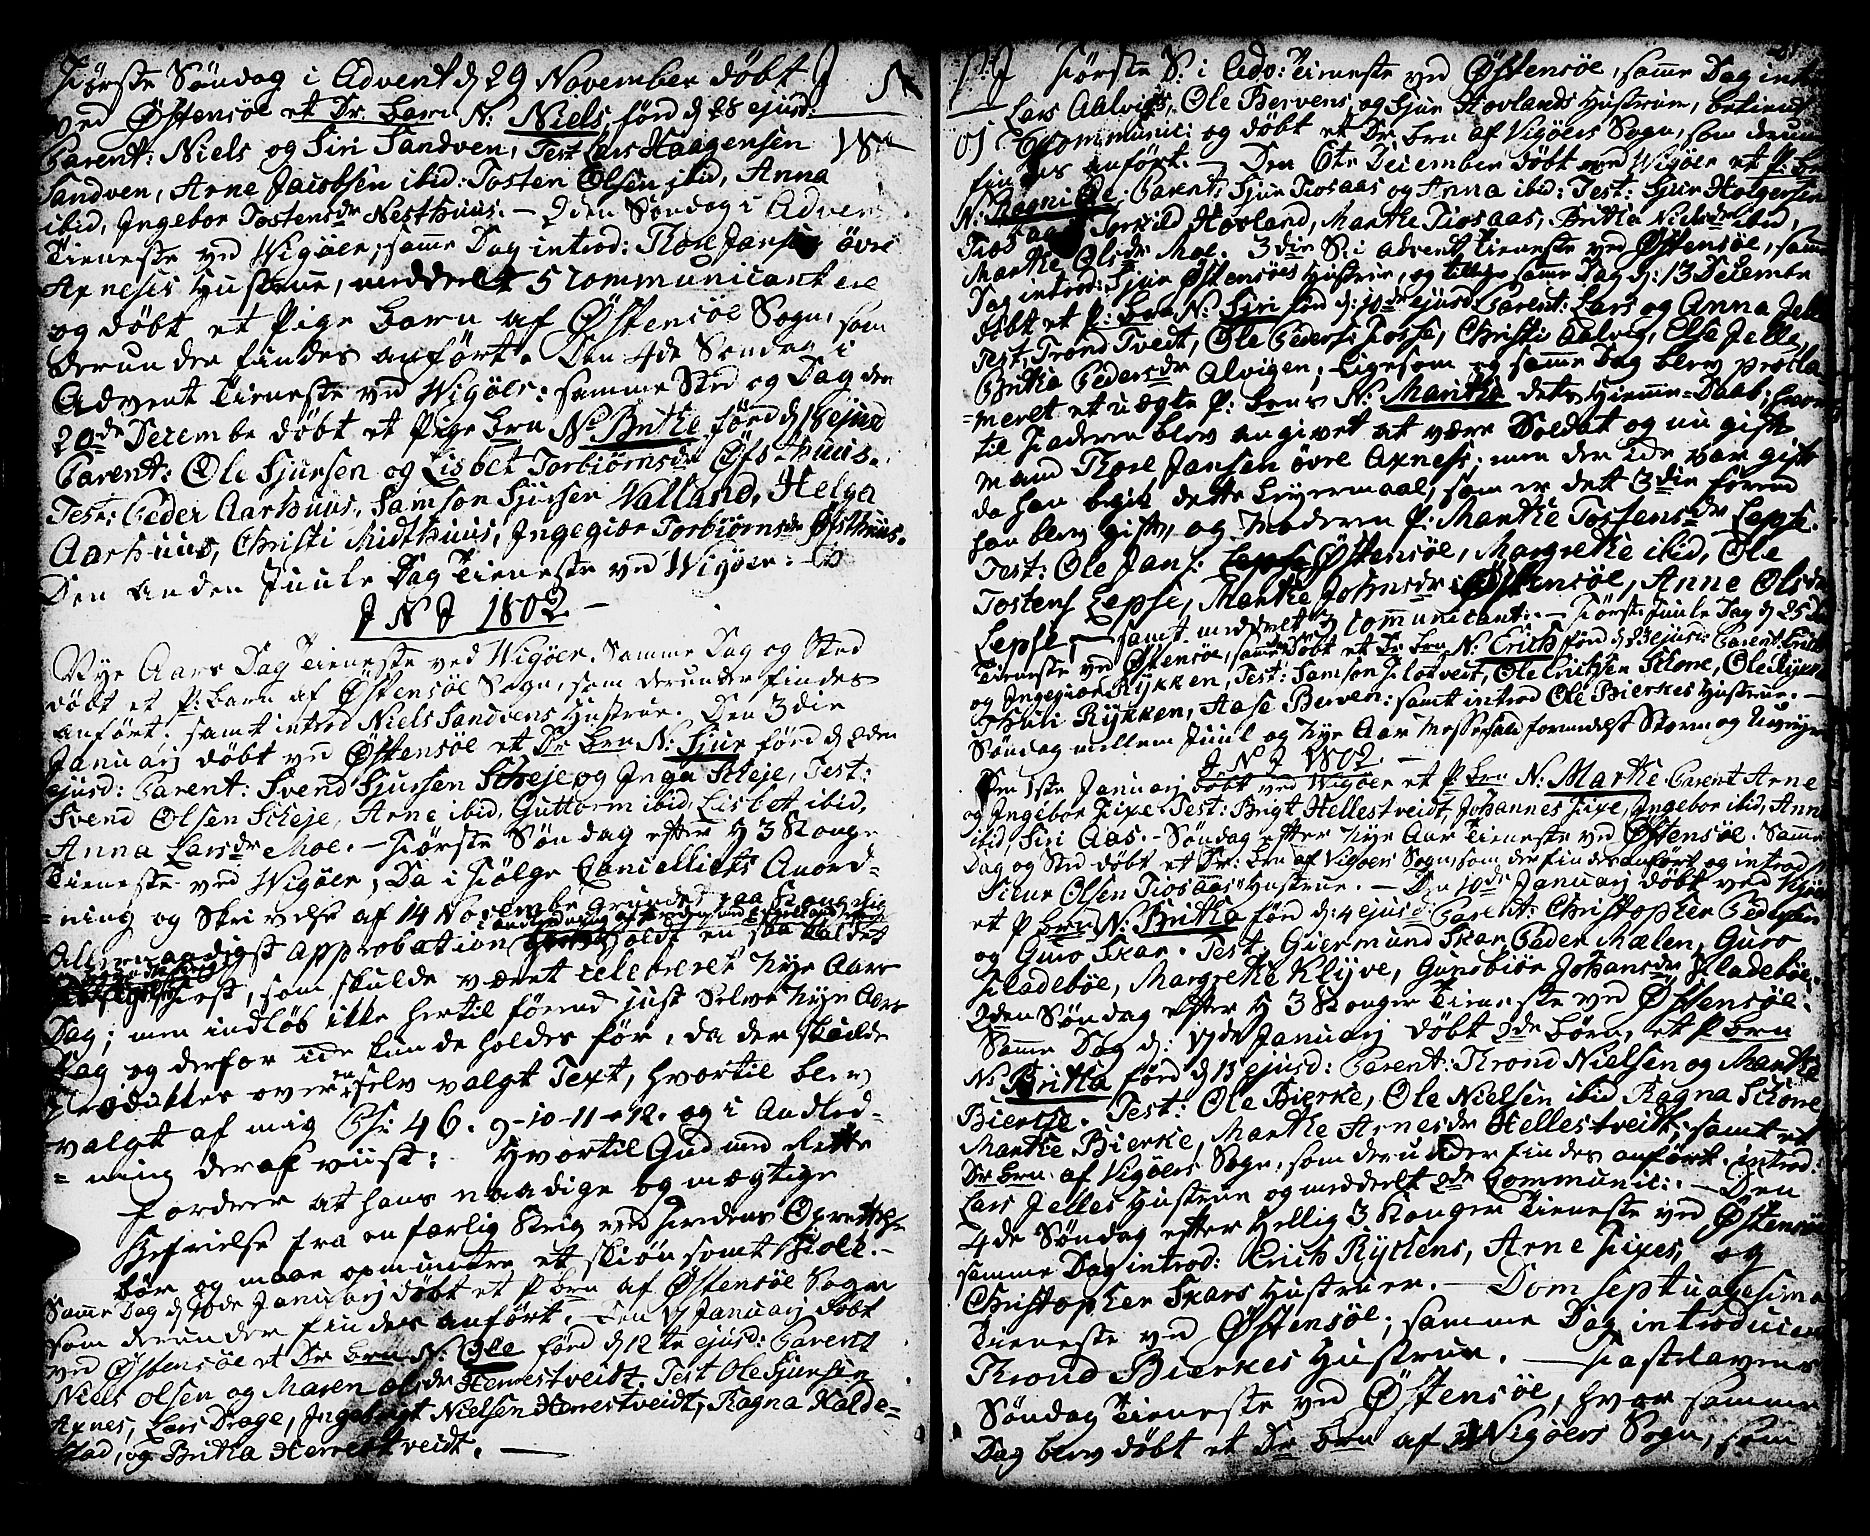 Første Søndag i Advent d 29 November døbt
ved Østensøe et Dr. Barn N: Niels førd d 28 ejusd:
Parent: Niels og Siri Sandven, Test Lars Haagensen
Sandven, Arne Jacobsen ibid: Tosten Olsen ibid, Anna
ibid, Ingebor Tostensdr Nesthuus. – 2den Søndag i Advent
Tieneste ved Wigøer, samme Dag introd: Thore Jansen øvre
Axneses Hustrue, meddeelt 5 Communicantere
og døbt et Pige Barn af Østensøe Sogn, som
derunder findes anført. Den 4de Søndag i
Advent Tieneste ved Wigøer: samme Sted og Dag den
20de Decembr døbt et Pige Brn N: Britte førd d 18 ejusd
Parent: Ole Sjursen og Lisbet Torbiørnsdr Øfsthuus.
Test: Peder Aarhuus, Samson Sjursen Valland, Helga
Aarhuus, Christi Midthuus, Ingegiær Torbiørnsdr Øfsthuus.
Den anden Juule Dag Tieneste ved Wigøer: –
J N J 1802 –
Nye Aars Dag Tieneste ved Wigøer. Samme Dag og Sted
døbt et P: Barn af Østensøe Sogn, som derunder findes
anført. samt introd Niels Sandvens Hustrue. Den 3die
Januarij døbt ved Østensøe et Dr Brn N: Sjur førd d 2den
ejusd: Parent: Svend Sjursen Scheje og Inga Scheje, Test:
Svend Olsen Scheje, Arne ibid, Guttorm ibid, Lisbet ibid,
Anna Larsdr Moe. – Første Søndag efter H 3 Konge
Tieneste ved Wigøer, Da i Følge Cancelliets Anord-
=ning og Skrivelse af 14 Novembr grundet paa Kongelig
Allernaadigst Approbation holdt en saa kaldet
Fest, som skulde været celebreret Nye Aars
Dag; men indløb ikke hertil førend just Selve Nye Aars
Dag og derfor icke kunde holdes før, da der skulde
prædikes over en selv valgt Text, hvortil blev
valgt af mig Ps: 46. 9-10-11-12. og i Anled-
=ning deraf viist: Hvortil Gud med Rette
fordrer at hans naadige og mægtige
Befrielse fra en farlig Krig ved Fredens Oprettelse
bør og maae opmuntre et skiønsomt Folk. –
Samme Dag d 10de Januarij døbt et P Brn af Østensøe Sogn
som derunder findes anført. Den 17 Januarij døbt
ved Østensøe et Dr Brn N: Ole førd d 12te ejusd: Parent
Niels Olsen og Maren Olsdr Herrestveidt, Test Ole Sjursen
Axnes, Lars Drage, Ingebrigt Nielsen Herrestveidt, Ragna Kalde-
stad, og Britha Herrestveidt. –
Første S: i Adv: Tieneste ved Østensøe, samme Dag introd
Lars Aalvigs, Ole Bervens og Sjur Hovlands Hustruer, betient
Communic: og døbt et Dr Brn af Vigøers Sogn, som derunder
findes anført. – Den 6te December døbt ved Wigøer et P: Brn
N: Ragnilde Parent: Sjur Tiosaas og Anna ibid: Test: Sjur Holgersen
Tiosaas, Torkild Hovland, Marthe Tiosaas, Britha Nielsdr ibid,
Marthe Olsdr Moe. 3die S: i Advent Tieneste ved Østensøe, samme
Dag introd: Sjur Østensøes Hustrue, og tillige samme Dag d: 13 Decembr
døbt et P: Brn N: Siri førd d: 10de ejusd Parent: Lars og Anna Jelle
Test, Trond Tvedt, Ole Peders: Fosse, Christi Aalvig, Else Jelle,
Britha Pedersdr Alvigen; Ligesom og samme Dag blev procla-
=meret et uægte P: Brns N: Martha dets Hiemme-Daab: hvor
til Faderen blev angivet at være Soldat og nu gift
Mand Thore Jansen øvre Axnes, men der icke var gift
da han begik dette Leyermaal, som er det 3die førend
han blev gift, og Moderen P: Marthe Tostensdr Lepse.
Test: Ole Jans: Østensøe, Margrethe ibid, Ole
Tostens Lepse, Marthe Johnsdr Østensøe, Anne Olsdr
Lepse, – samt meddeelt Communicant: – Første Juule Dag d 25de
Tieneste ved Østensøe, samme døbt et Dr Brn N: Erich førd d 23 ejusd: Parent Erich
og Ingegiær Rykken, Test: Samson Flotveit, Ole Erichsen Schone, Ole Rykken
Rykken, Aase Berven: samt introd Ole Bierkes Hustrue. –
Søndag mellem Juul og Nye Aar Messefald formedelst Storm og Uveyr
J N J 1802 –
Den 1ste Januarij døbt ved Wigøer et P Brn N: Marthe Parent Arne
og Ingebor Fixe Test: Brigt Hellestveidt, Johannes Fixe, Ingebor ibid, Anna
ibid, Siri Aas. – Søndag efter Nye Aar Tieneste ved Østensøe. Samme
Dag og Sted døbt et Dr: Brn af Vigøers Sogn, som der findes anført og introd
Sjur Olsen Tiosaas Hustrue. – Den 10de Januarij døbt ved Wigøer
et P Brn N: Britha førd d: 4 ejusd: Parent: Christopher Pedersen
og Guro Skar. Test: Giermund Skar, Peder Mælen, Guro
Fladebøe, Margrethe Klyve, Gunsbiør Johansdr Fladebøe.
2den Søndag efter H 3 Konger Tieneste ved Østensøe.
Samme Dag d: 17de Januarij døbt 2de Børn, et P Brn
N: Britha førd d 13 ejusd: Parent: Trond Nielsen og Martha
Bierke. Test: Ole Bierke, Ole Nielsen ibid Ragna Schone
Marthe Bierke, Marthe Arnesdr Hellestveidt, samt et
Dr Brn af Vigøers Sogn, som derunder findes anført. introd:
Lars Jelles Hustrue og meddeelt 2de Communic:. – Den
4de Søndag efter Hellig 3 Konger Tieneste ved Østensøe
samme Dag introd: Erich Rykkens, Arne Fixes, og
Christopher Skars Hustruer. – Dom Septuagesima
Tieneste ved Østensøe; samme Dag introducert
Thrond Bierkes Hustrue. – Fastelavens
Søndag Tieneste ved Østensøe, hvor samme
Dag blev døbt et Dr Brn af Wigøers Sogn, som